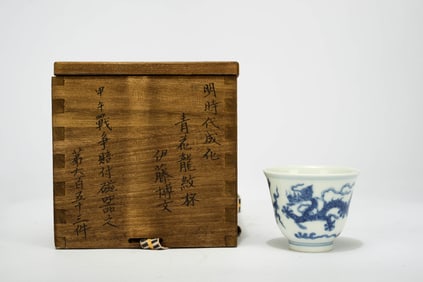 明時代成化
青花龍紋杯
伊藤博文
甲午戰争賠付磁器之
第六百五十三件